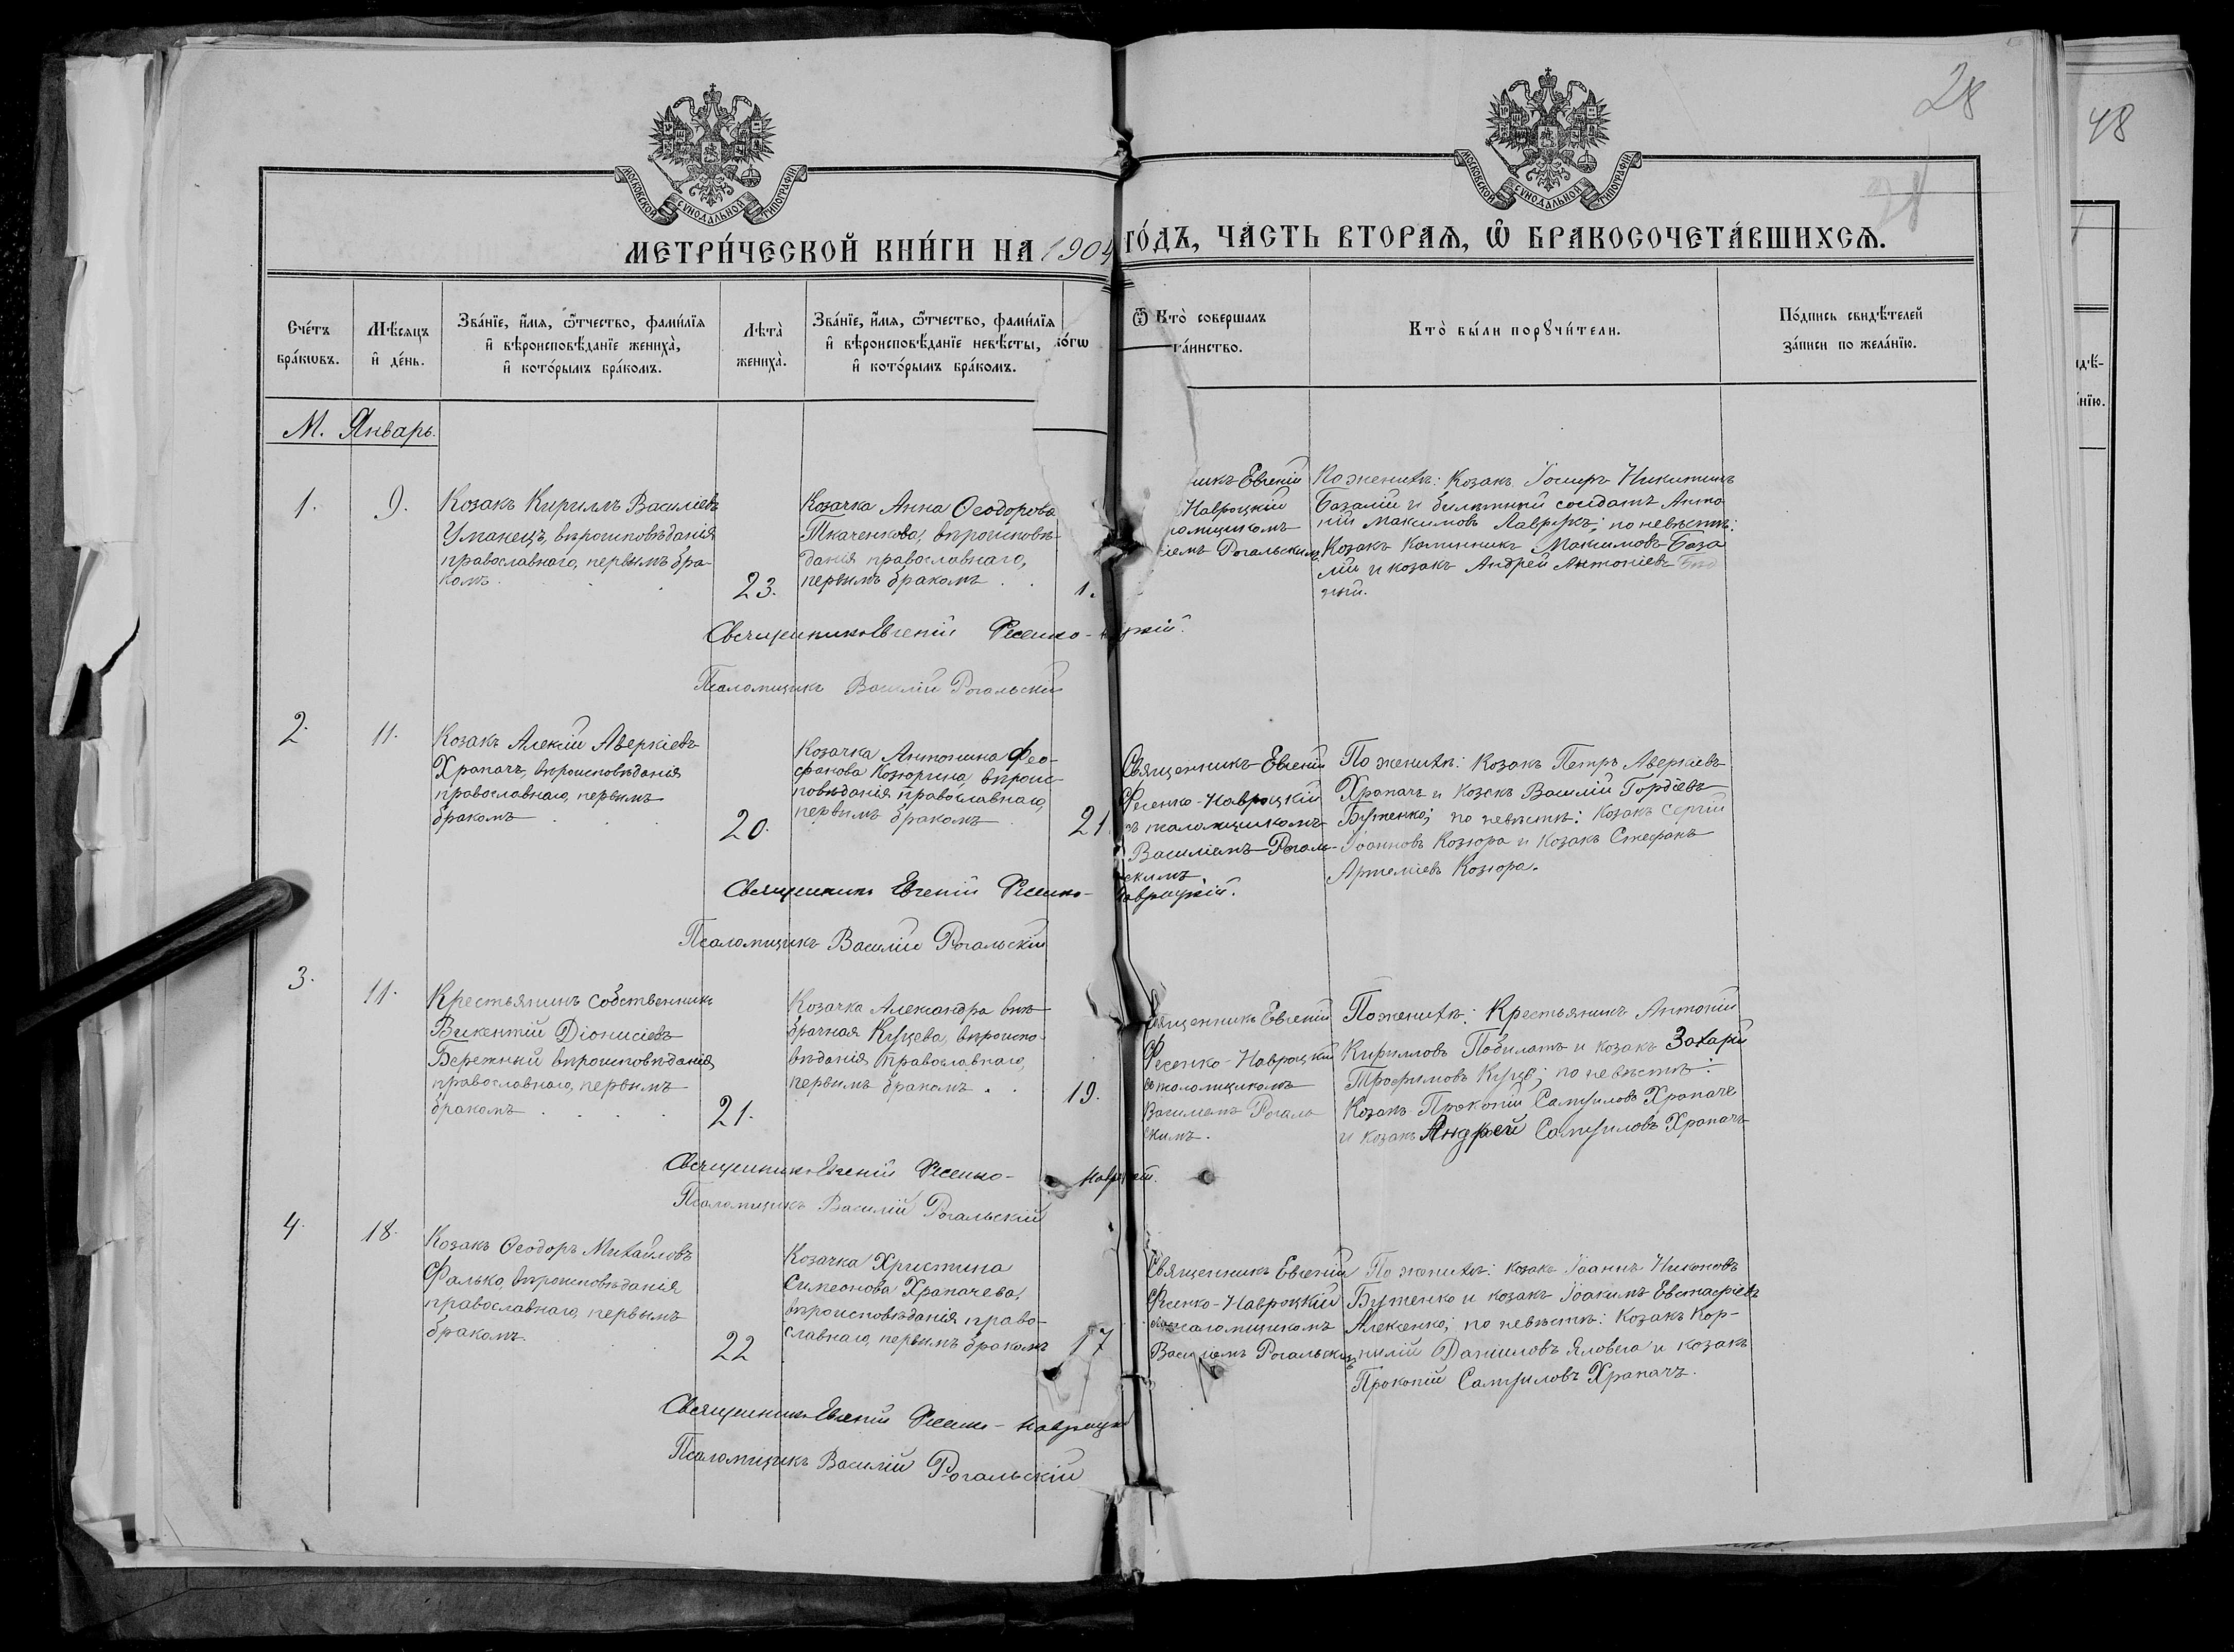 28
48
МОСКОВСКОЙ СѴНОДАЛЬНОЙ ТИПОГРАФІИ
МОСКОВСКОЙ СѴНОДАЛЬНОЙ ТИПОГРАФІИ
МЕТРИ́ЧЕСКОЙ КНИ́ГИ НА 1904 ГО́ДЪ, ЧАСТЬ ВТОРАѦ, Ѡ҆ БРАКОСОЧЕТА́ВШИХСѦ.
Сче́тъ
бра́кѡвъ.
Мѣ́сяцъ
и҆ де́нь.
Зва́нїе, и҆́мѧ, ѻ҆́тчество, фами́лїѧ
и҆ вѣроисповѣ́данїе жениха̀,
и҆ кото́рымъ бра́комъ.
Лѣ́та̀
жениха̀.
Зва́нїе, и҆́мѧ, ѻ҆́тчество, фами́лїѧ
и҆ вѣроисповѣ́данїе невѣ́сты,
и҆ кото́рымъ бра́комъ.
Кто̀ соверша́лъ
та́инство.
Кто̀ бы́ли порꙋчи́тели.
По́дпись свидѣ́телей
за́писи по жела́нїю.
М. Январь.
1.
9.
Козакъ Кириллъ Василіевъ
Уманецъ, вѣроисповѣданія
православнаго, первымъ бра-
комъ
23.
Козачка Анна Ѳеодорова
Ткаченкова, вѣроисповѣ-
данія православнаго,
первымъ бракомъ
никъ Евгеній
Навроцкій
ломщикомъ
іемъ Рогальскимъ
По женихѣ: Козакъ Никитинъ
Базалій и билетный солдатъ Анто-
ній Максимовъ; по невѣстѣ:
Козакъ Максимовъ База
лій и козакъ Андрей Антоніевъ
Священникъ Евгеній Фесенко-
Псаломщикъ Василій Рогальскій
2.
11.
Козакъ Алексій Аверкіевъ
Храпачъ, вѣроисповѣданія
православнаго, первымъ
бракомъ
20.
Козачка Антонина Фео-
фанова Козюрина вѣроис-
повѣданія православнаго,
первымъ бракомъ
21
Священникъ Евгеній
Фесенко-Навроцкій
съ псаломщикомъ
Василіемъ Рогаль-
скимъ
По женихѣ: Козакъ Петръ Аверкіевъ
Храпачъ и Козакъ Василій Гордіевъ
Бутенко; по невѣстѣ: Козакъ Сергій
Іоанновъ Козюра и Козакъ Стефанъ
Артеміевъ Козюра.
Священникъ Евгеній Фесенко-Навроцкій.
Псаломщикъ Василій Рогальскій
3.
11.
Крестьянинъ собственникъ
Викентій Діонисіевъ
Бережный вѣроисповѣданія
православнаго, первымъ
бракомъ
21.
Козачка Александра внѣ-
брачная Куцева, вѣроиспо-
вѣданія православнаго,
первымъ бракомъ
19.
Священникъ Евгеній
Фесенко-Навроцкій
съ псаломщикомъ
Василіемъ Рогаль
скимъ.
По женихѣ: Крестьянинъ Антоній
Кирилловъ и козакъ Захарій
Трофимовъ Куцъ; по невѣстѣ:
Козакъ Прокопій Самуиловъ Храпачъ
и козакъ Андрей Самуиловъ Храпачъ
Священникъ Евгеній Фесенко-Навроцкій.
Псаломщикъ Василій Рогальскій
4.
18.
Козакъ Ѳеодоръ Михаиловъ
Фалько, вѣроисповѣданія
православнаго, первымъ
бракомъ
22
Козачка Христина
Симеонова Храпачева,
вѣроисповѣданія право-
славнаго, первымъ бракомъ
17
Священникъ Евгеній
Фесенко-Навроцкій
псаломщикомъ
Василіемъ Рогальскимъ
По женихѣ: козакъ Іоаннъ Никоновъ
Бутенко и козакъ Іоакимъ Евстафіевъ
Алексенко; по невѣстѣ: Козакъ Кор-
нилій Даніиловъ Яловега и козакъ
Прокопій Самуиловъ Храпачъ.
Священникъ Евгеній Фесенко-Навроцкій
Псаломщикъ Василій Рогальскій